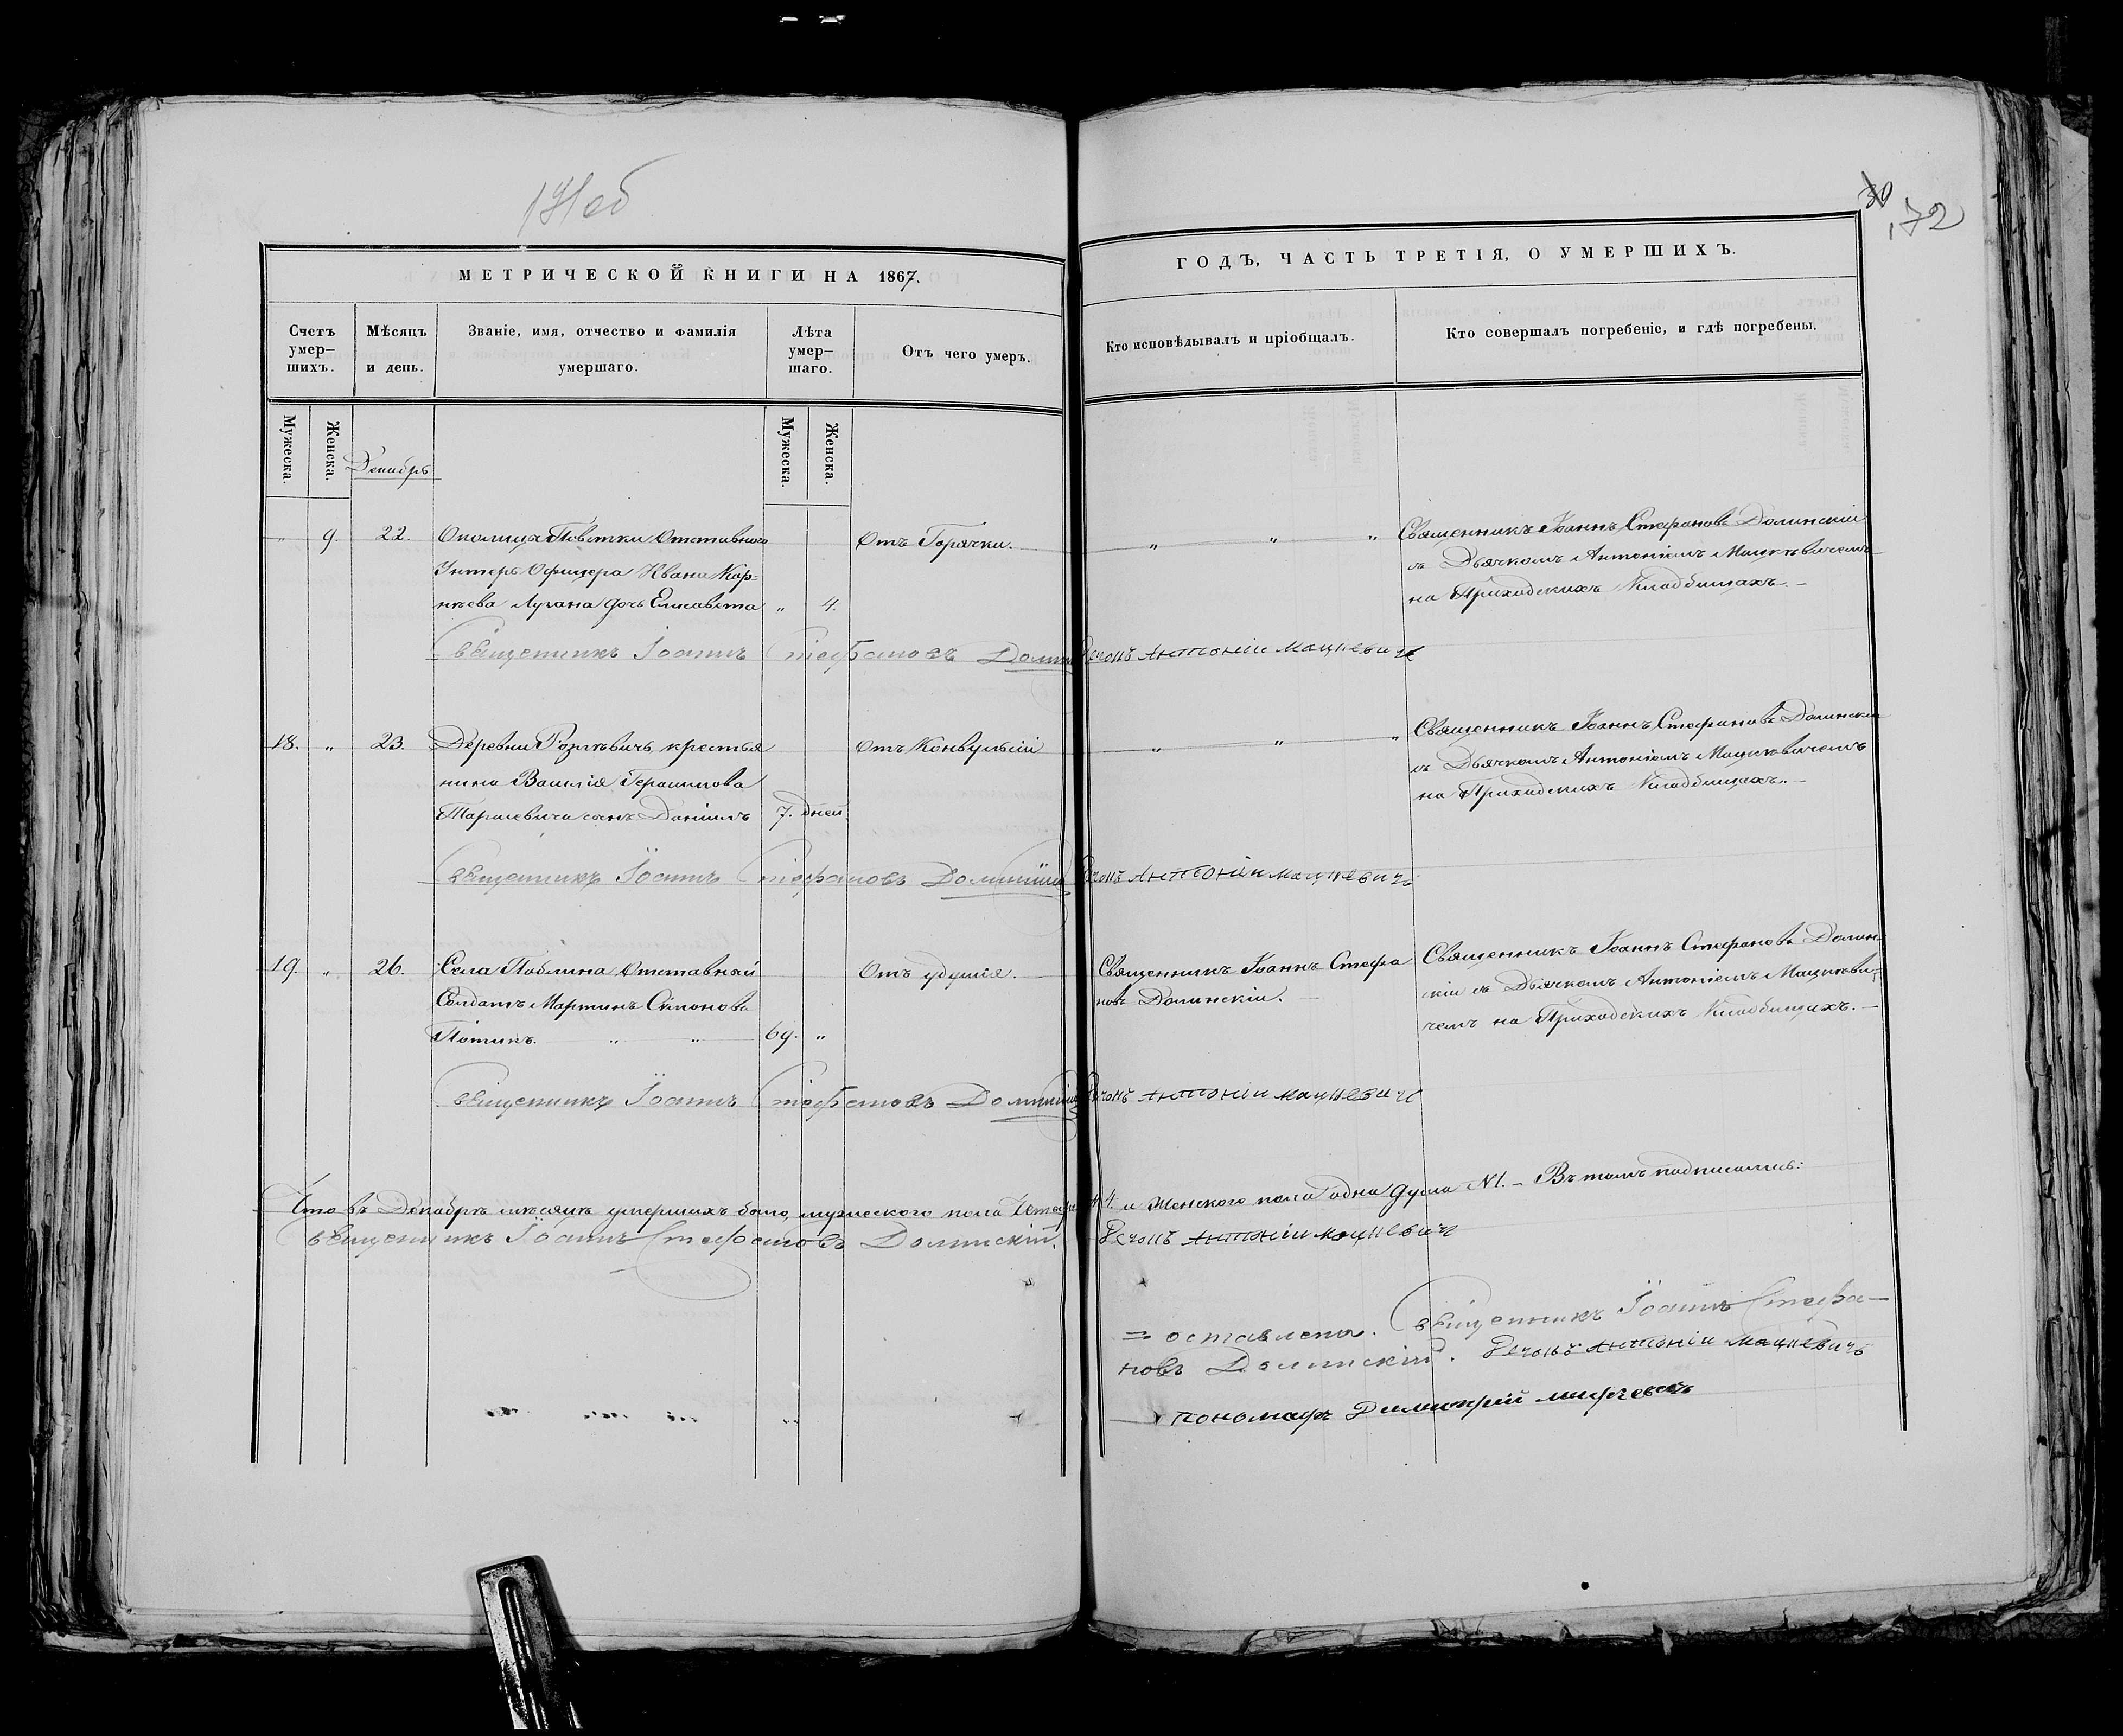 171 об
30
172
МЕТРИЧЕСКОЙ КНИГИ НА 1867.
ГОДЪ, ЧАСТЬ ТРЕТІЯ, О УМЕРШИХЪ.
Счетъ умер—шихъ.
Мѣсяцъ и день.
Званіе, имя, отчество и фамилія умершаго.
Лѣта умер—шаго.
Отъ чего умеръ.
Кто исповѣдывалъ и пріобщалъ.
Кто совершалъ погребеніе, и гдѣ погребены.
Мужеска.
Женска.
Мужеска.
Женска.
Декабрь
" 9. 22. Околицы Отставного Отъ Горячки. " " " Священникъ Іоаннъ Стефановъ Долинскій
Унтеръ Офицера Ивана Кор= съ Дьячкомъ Антоніемъ Мацкѣвичемъ
нѣева дочь Елисавета " 4. на Приходскихъ Кладбищахъ.—
Священникъ Іоаннъ Стефановъ Долин Дячокъ Антоній Мацкевичъ
18. " 23. Деревни крестья Отъ Конвульсій " " " Священникъ Іоаннъ Стефановъ Долинскій
нина Василія Герасимова съ Дьячкомъ Антоніемъ Мацкѣвичемъ
Тарасевича сынъ Даніилъ 7. дней. на Приходскихъ Кладбищахъ.—
Священникъ Іоаннъ Стефановъ Долинскій Дячокъ Антоній Мацкевичъ
19. " 26. Села Поблина Отставный Отъ удушія. Священникъ Іоаннъ Стефа Священникъ Іоаннъ Стефановъ Долин=
Солдатъ Мартинъ Симоновъ новъ Долинскій. скій съ Дьячкомъ Антоніемъ Мацкѣви=
" " 69. " чемъ на Приходскихъ Кладбищахъ.—
Священникъ Іоаннъ Стефановъ Долинскій Дячокъ Антоній Мацкевичъ
Что въ Декабрѣ мѣсяцѣ умершихъ было, мужеского пола 4. и Женского пола одна душа N1.— Въ томъ подписались:
Священникъ Іоаннъ Стефановъ Долинскій. Дячокъ Антоній Мацкевичъ
= оставлена. Священникъ Іоаннъ Стефа—
новъ Долинскій. Дячокъ Антоній Мацкевичъ
пономаръ Димитрій